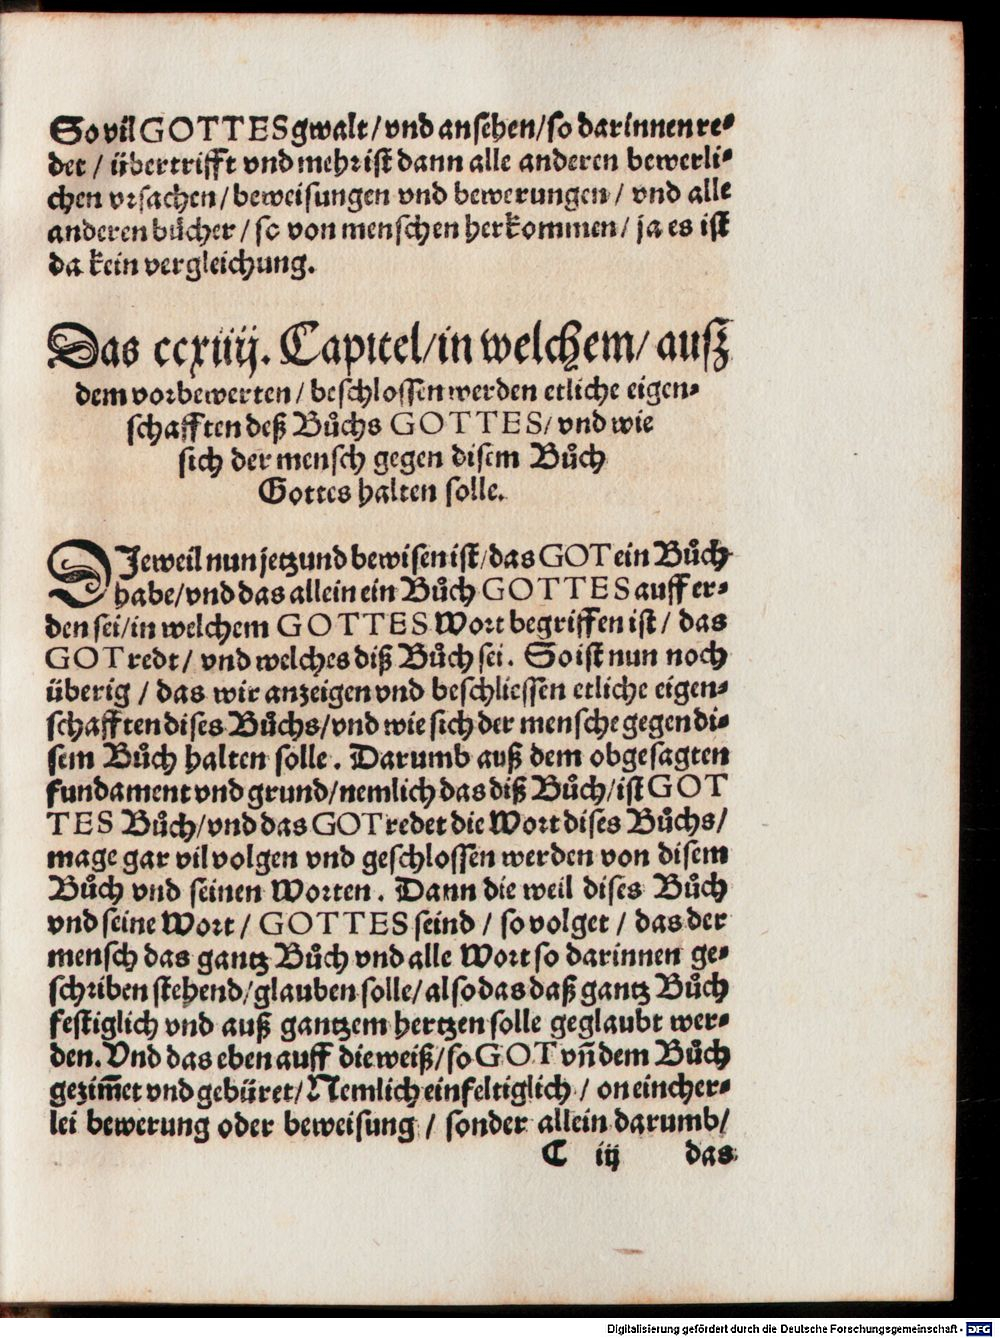 So vil GOTTES gwalt / vnd ansehen / so darinnen re⸗
det / übertrifft vnd mehr ist dann alle anderen bewerli⸗
chen vrsachen / beweisungen vnd bewerungen / vnd alle
anderen bücher / so von menschen herkommen / ja es ist
da kein vergleichung.
Das ccxiiij. Capitel / in welchem / ausz
dem vorbewerten / beschlossen werden etliche eigen⸗
schafften deß Bůchs GOTTES / vnd wie
sich der mensch gegen disem Bůch
Gottes halten solle.
DIeweil nun jetzund bewisen ist / das GOT ein Bůch
habe / vnd das allein ein Bůch GOTTES auff er⸗
den sei / in welchem GOTTES Wort begriffen ist / das
GOT redt / vnd welches diß Bůch sei. So ist nun noch
überig / das wir anzeigen vnd beschliessen etliche eigen⸗
schafften dises Bůchs / vnd wie sich der mensche gegen di⸗
sem Bůch halten solle. Darumb auß dem obgesagten
fundament vnd grund / nemlich das diß Bůch / ist GOT
TES Bůch / vnd das GOT redet die Wort dises Bůchs /
mage gar vil volgen vnd geschlossen werden von disem
Bůch vnd seinen Worten. Dann die weil dises Bůch
vnd seine Wort / GOTTES seind / so volget / das der
mensch das gantz Bůch vnd alle Wort so darinnen ge⸗
schriben stehend / glauben solle / also das daß gantz Bůch
festiglich vnd auß gantzem hertzen solle geglaubt wer⸗
den. Vnd das eben auff die weiß / so GOT vñ dem Bůch
gezim̃et vnd gebüret / Nemlich einfeltiglich / on eincher⸗
lei bewerung oder beweisung / sonder allein darumb /
C iij das
Digitalisierung gefördert durch die Deutsche Forschungsgemeinschaft - DFG